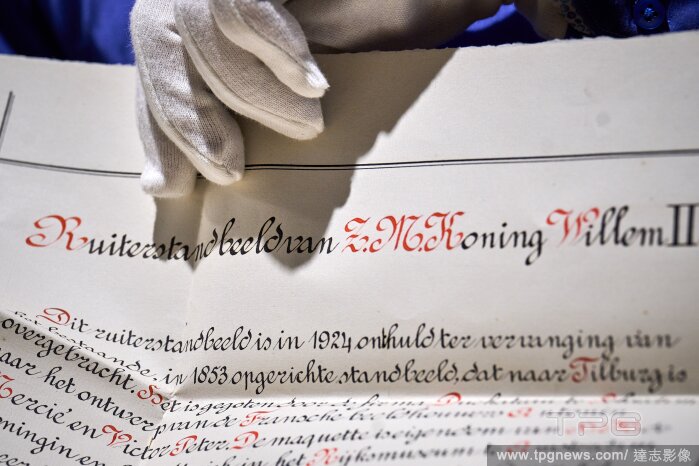 Ruiterstandbeeld van Z.M. Koning Willem II
Dit ruiterstandbeeld is in 1924 onthuld ter vervanging van
het bestaande, in 1853 opgerichte standbeeld, dat naar Tilburg is
overgebracht. Het is gegoten door de firma
naar het ontwerp van de Fransche beeldhouwers
Mercié en Victor Peter. De maquette is eigendom van
in het Rijksmuseum
TPG
www.tpgnews.com/ 達志影像